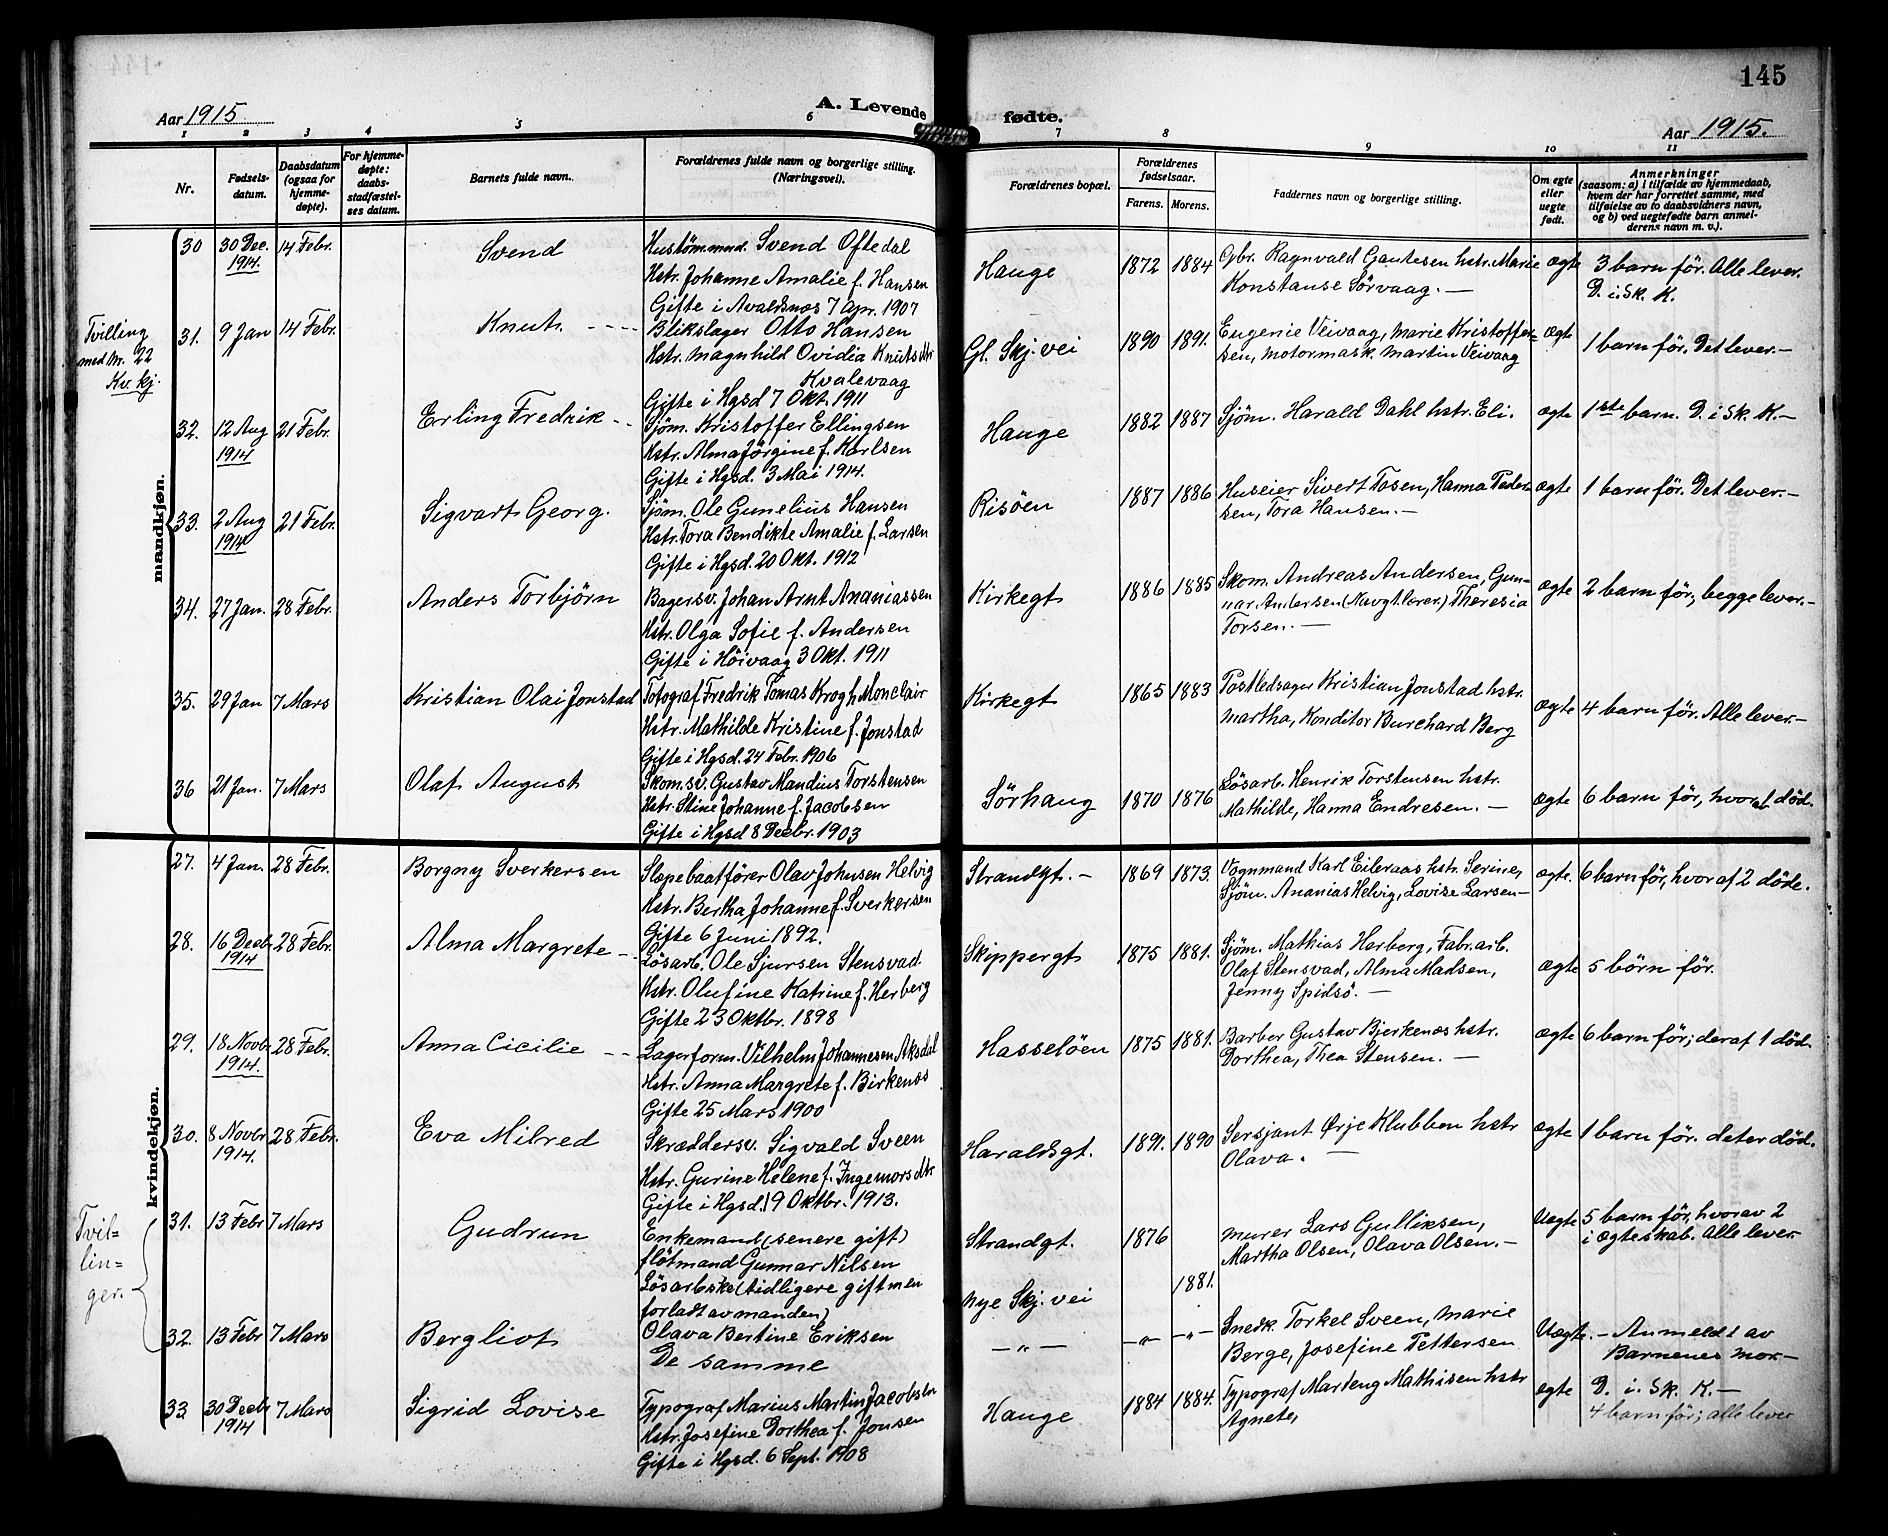 145
Aar 1915
A. Levende fødte.
Aar 1915.
1 2 3 4 5 6 7 8 9 10 11
Nr.
Fødsels-
datum.
Daabsdatum
(ogsaa for
hjemme-
døpte).
For hjemme-
døpte:
daabs-
stadfæstel-
ses datum.
Barnets fulde navn.
Forældrenes fulde navn og borgerlige stilling.
(Næringsvei).
Forældrenes bopæl.
Forældrenes
fødselsaar.
Farens. Morens.
Faddernes navn og borgerlige stilling.
Om egte
eller
uegte
født.
Anmerkninger
(saasom: a) i tilfælde av hjemmedaab,
hvem der har forrettet samme, med
tilføielse av to daabsvidners navn,
og b) ved uegtefødte barn anmel-
derens navn m. v.).
mandkjøn.
30 30 Dec. 1914. 14 Febr. Svend
Hustømmed. Svend Oftedal
Hstr. Johanne Amalie f. Hansen
Gifte i Avaldsnes 7 Apr. 1907
Hauge 1872 1884
Gbr. Ragnvald Gautesen hstr. Marie
Konstanse Sørvaag. —
ægte
3 barn før. Alle lever.
D. i Sk. K.
Tvilling
med Nr. 22
Kv. kj.
31. 9 Jan 14 Febr. Knut
Blikslager Otto Hansen
Hstr. Magnhild Ovidia Knutsdtr
Kvalevaag
Gifte i Hgsd 7 Okt. 1911
Gl. Skj. vei 1890 1891.
Eugenie Veivaag, Marie Kristoffer-
sen, Motormask. Martin Veivaag
ægte
1 barn før. Det lever. —
32. 12 Aug 1914 21 Febr. Erling Fredrik
Sjøm. Kristoffer Ellingsen
Hstr. Alma Jørgine f. Karlsen
Gifte i Hgsd. 3 Mai 1914.
Hauge 1882 1887
Sjøm. Harald Dahl hstr. Eli.
ægte
1ste barn. D. i Sk. K. —
33. 2 Aug 1914 21 Febr. Sigvart Georg.
Sjøm. Ole Gunelius Hansen
Hstr. Tora Bendikte Amalie f. Larsen
Gifte i Hgsd. 20 Okt. 1912
Risøen 1887 1886
Huseier Sivert Tosen, Hanna Peder-
sen, Tora Hansen. —
ægte
1 barn før. Det lever. —
34. 27 Jan. 28 Febr. Anders Torbjørn
Bagersv. Johan Arnt Ananiassen
Hstr. Olga Sofie f. Andersen
Gifte i Høivaag 3 Okt. 1911
Kirkegt 1886 1885
Skom. Andreas Andersen, Gun-
nar Andersen (Navgt. lærer.) Theresia
Torsen. —
ægte
2 barn før, begge lever. —
35. 29 Jan 7 Mars Kristian Olai Jonstad
Fotograf Fredrik Tomas Krogh Monclair
Hstr. Mathilde Kristine f. Jonstad
Gifte i Hgsd. 24 Febr. 1906
Kirkegt 1865 1883
Postledsager Kristian Jonstad hstr.
Martha, Konditor Burchard Berg
ægte
4 barn før. Alle lever. —
36 21 Jan. 7 Mars Olaf August
Skom.sv. Gustav Mandius Torstensen
Hstr. Stine Johanne f. Jacobsen
Gifte i Hgsd 8 Decbr. 1903
Sørhaug 1870 1876
Løsarb. Henrik Torstensen hstr.
Mathilde, Hanna Endresen. —
ægte
6 barn før, hvoraf død.
kvindekjøn.
27. 4 Jan. 28 Febr. Borgny Sverkersen
Slæpebaatfører Olav Johnsen Helvig
Hstr. Bertha Johanne f. Sverkersen
Gifte 6 Juni 1892.
Strandgt. — 1869 1873.
Vognmand Karl Eileraas hstr. Serine,
Sjøm. Ananias Helvig, Lovise Larsen —
ægte.
6 barn før, hvoraf 2 døde.
28. 16 Decbr 1914 28 Febr. Alma Margrete
Løsarb. Ole Sjursen Stensvad
Hstr. Olufine Katrine f. Herberg
Gifte 23 Oktbr. 1898
Skippergt 1875 1881.
Sjøm. Mathias Herberg, Fabr.arb.
Olaf Stensvad, Alma Madsen,
Jenny Spidsø. —
ægte
5 børn før.
29. 18 Novbr 1914. 28 Febr. Anna Cicilie
Lagerform. Vilhelm Johannesen Aksdal
Hstr. Anna Margrete f. Birkenæs
Gifte 25 Mars 1900
Hasseløen 1875 1881.
Barber Gustav Bjerkenæs hstr.
Dorthea, Thea Stensen. —
ægte
6 barn før; deraf 1 død.
30. 8 Novbr 1914. 28 Febr. Eva Milred
Skræddersv. Sigvald Sveen
Hstr. Gurine Helene f. Ingemorsdtr
Gifte i Hgsd. 19 Oktbr. 1913.
Haraldsgt. 1891. 1890
Sersjant Ørje Klubben hstr
Olava. —
ægte
1 barn før. det er død.
Tvil-
lin-
ger.
31. 13 Febr 7 Mars Gudrun
Enkemand (senere gift)
fløtmand Gunnar Nilsen
Løsarbske (tidligere gift men
forladt av manden)
Olava Bertine Eriksen
Strandgt. 1876
Nye Skj. vei 1881.
Murer Lars Gulliksen,
Martha Olsen, Olava Olsen. —
Uegte
5 barn før, hvorav 2
i ægteskab. Alle lever
32. 13 Febr 7 Mars Bergliot
De samme
— " — — " — — " —
Snedk. Torkel Sveen, Marie
Berge, Josefine Pettersen
Uægte. —
Anmeldt av
Barnenes mor. —
33 30 Decbr 1914 7 Mars Sigrid Lovise
Typograf Marius Martin Jacobsen
Hstr. Josefine Dorthea f. Jonsen
Gifte i Hgsd. 6 Sept. 1908
Hauge 1884 1884.
Typograf Marteng Mathisen hstr
Agnete,
ægte
D. i. Sk. K. —
4 barn før; alle lever